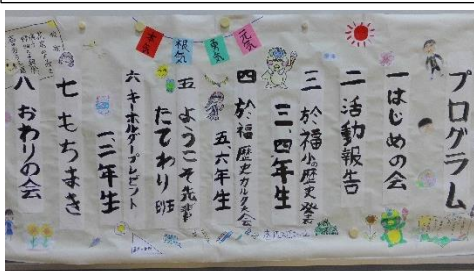 プログラム
一 はじめの会
二 活動報告
三 於福小の歴史発表
三、四年生
四 於福歴史カルタ大会
五、六年生
五 ようこそ先輩
たてわり班
六 キーホルダープレゼント
一、二年生
七 もちまき
八 おわりの会
元気
勇気
根気